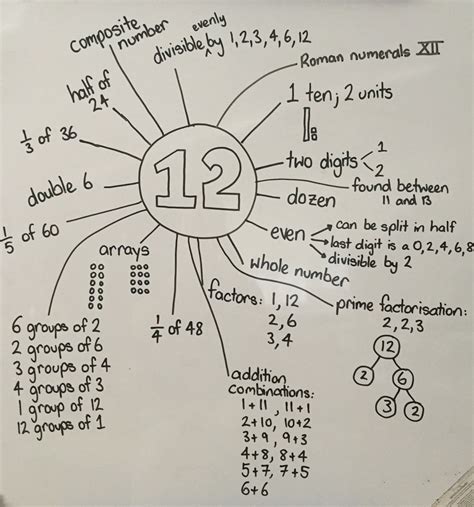 composite
number
evenly
divisible by 1,2,3,4,6,12
Roman numerals XII
half of
24
1 ten; 2 units
1/3 of 36
two digits
1
2
12
double 6
found between
11 and 13
dozen
1/5 of 60
even
can be split in half
last digit is a 0,2,4,6,8
divisible by 2
arrays
whole number
factors: 1, 12
2, 6
3, 4
prime factorisation:
2, 2, 3
12
2
6
3
2
6 groups of 2
2 groups of 6
3 groups of 4
4 groups of 3
1 group of 12
12 groups of 1
1/4 of 48
addition
combinations:
1+11, 11+1
2+10, 10+2
3+9, 9+3
4+8, 8+4
5+7, 7+5
6+6